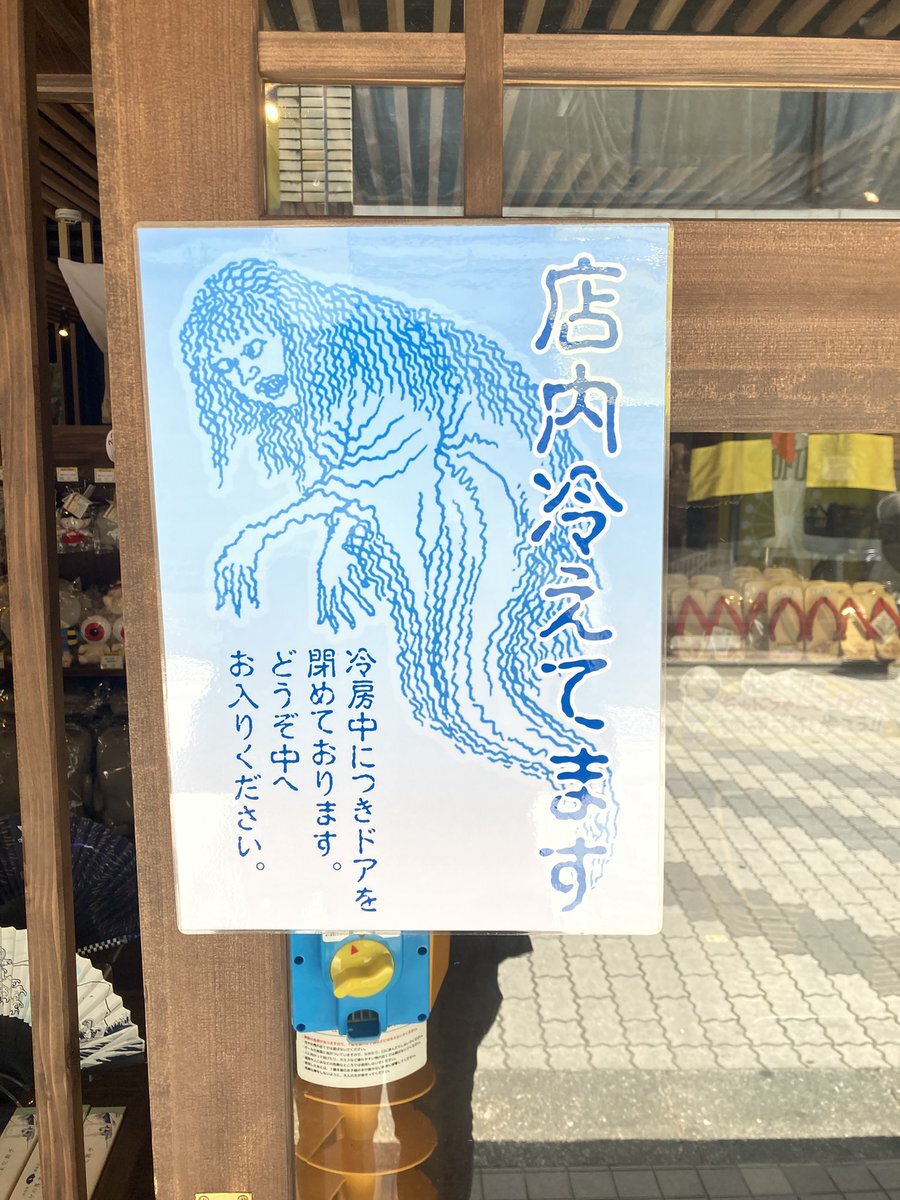 店内冷えてます
冷房中につきドアを
閉めております。
どうぞ中へ
お入りください。